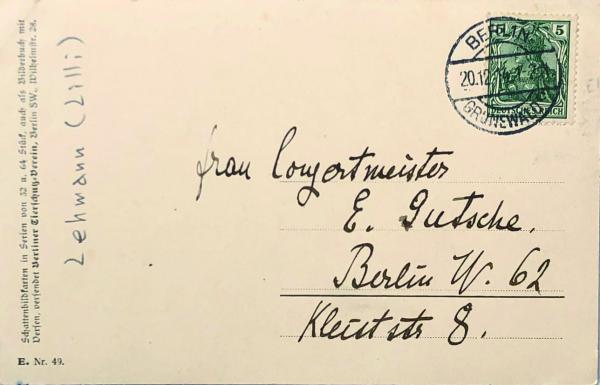 Schattenbildkarten in Serien von 32 u. 64 Stück, auch als Bilderbuch mit
Versen, versendet Berliner Tierschutz-Verein, Berlin SW., Wilhelmstr. 28.
E. Nr. 49.
Lehmann (Lilli)
BERLIN
20.12.
GRUNEWALD
5
DEUTSCHES REICH
Frau Conzertmeister
E. Gutsche.
Berlin W. 62
Kleiststr 8.